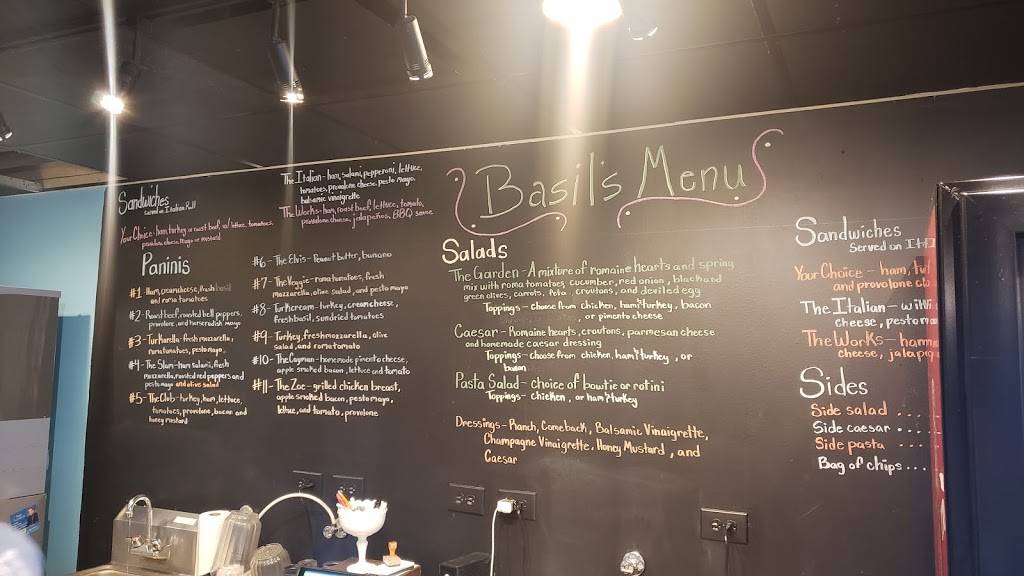 Basil's Menu
Sandwiches
Served on Italian Roll
Your Choice - ham, turkey or roast beef, w/ lettuce, tomatoes,
provolone cheese, mayo or mustard
The Italian - ham, salami, pepperoni, lettuce,
tomatoes, provolone cheese, pesto mayo,
balsamic vinaigrette
The Works - ham, roast beef, lettuce, tomato,
provolone cheese, jalapeños, BBQ sauce
Paninis
#1 - Ham, creamcheese, fresh basil
and roma tomatoes
#2 - Roast beef, roasted bell peppers,
provolone, and horseradish mayo
#3 - Turkarella - fresh mozzarella,
roma tomatoes, pesto mayo
#4 - The Slam - ham, salami, fresh
mozzarella, roasted red peppers and
pesto mayo and olive salad
#5 - The Club - turkey, ham, lettuce,
tomatoes, provolone, bacon and
honey mustard
#6 - The Elvis - Peanut butter, banana
#7 - The Veggie - roma tomatoes, fresh
mozzarella, olive salad, and pesto mayo
#8 - Turkcream - turkey, cream cheese,
fresh basil, sundried tomatoes
#9 - Turkey, fresh mozzarella, olive
salad, and roma tomato
#10 - The Cayman - homemade pimento cheese,
apple smoked bacon, lettuce and tomato
#11 - The Zoe - grilled chicken breast,
apple smoked bacon, pesto mayo,
lettuce, and tomato, provolone
Salads
The Garden - A mixture of romaine hearts and spring
mix with roma tomatoes, cucumber, red onion, black and
green olives, carrots, feta, croutons, and deviled egg
Toppings - choose from chicken, ham/turkey, bacon
, or pimento cheese
Caesar - Romaine hearts, croutons, parmesan cheese
and homemade caesar dressing
Toppings - choose from chicken, ham/turkey, or
bacon
Pasta Salad - choice of bowtie or rotini
Toppings - chicken, or ham/turkey
Dressings - Ranch, Comeback, Balsamic Vinaigrette,
Champagne Vinaigrette, Honey Mustard, and
Caesar
Sandwiches
Served on
Your Choice - ham,
and provolone
The Italian -
cheese, pesto
The Works -
cheese,
Sides
Side salad ....
Side caesar ....
Side pasta ....
Bag of chips ...